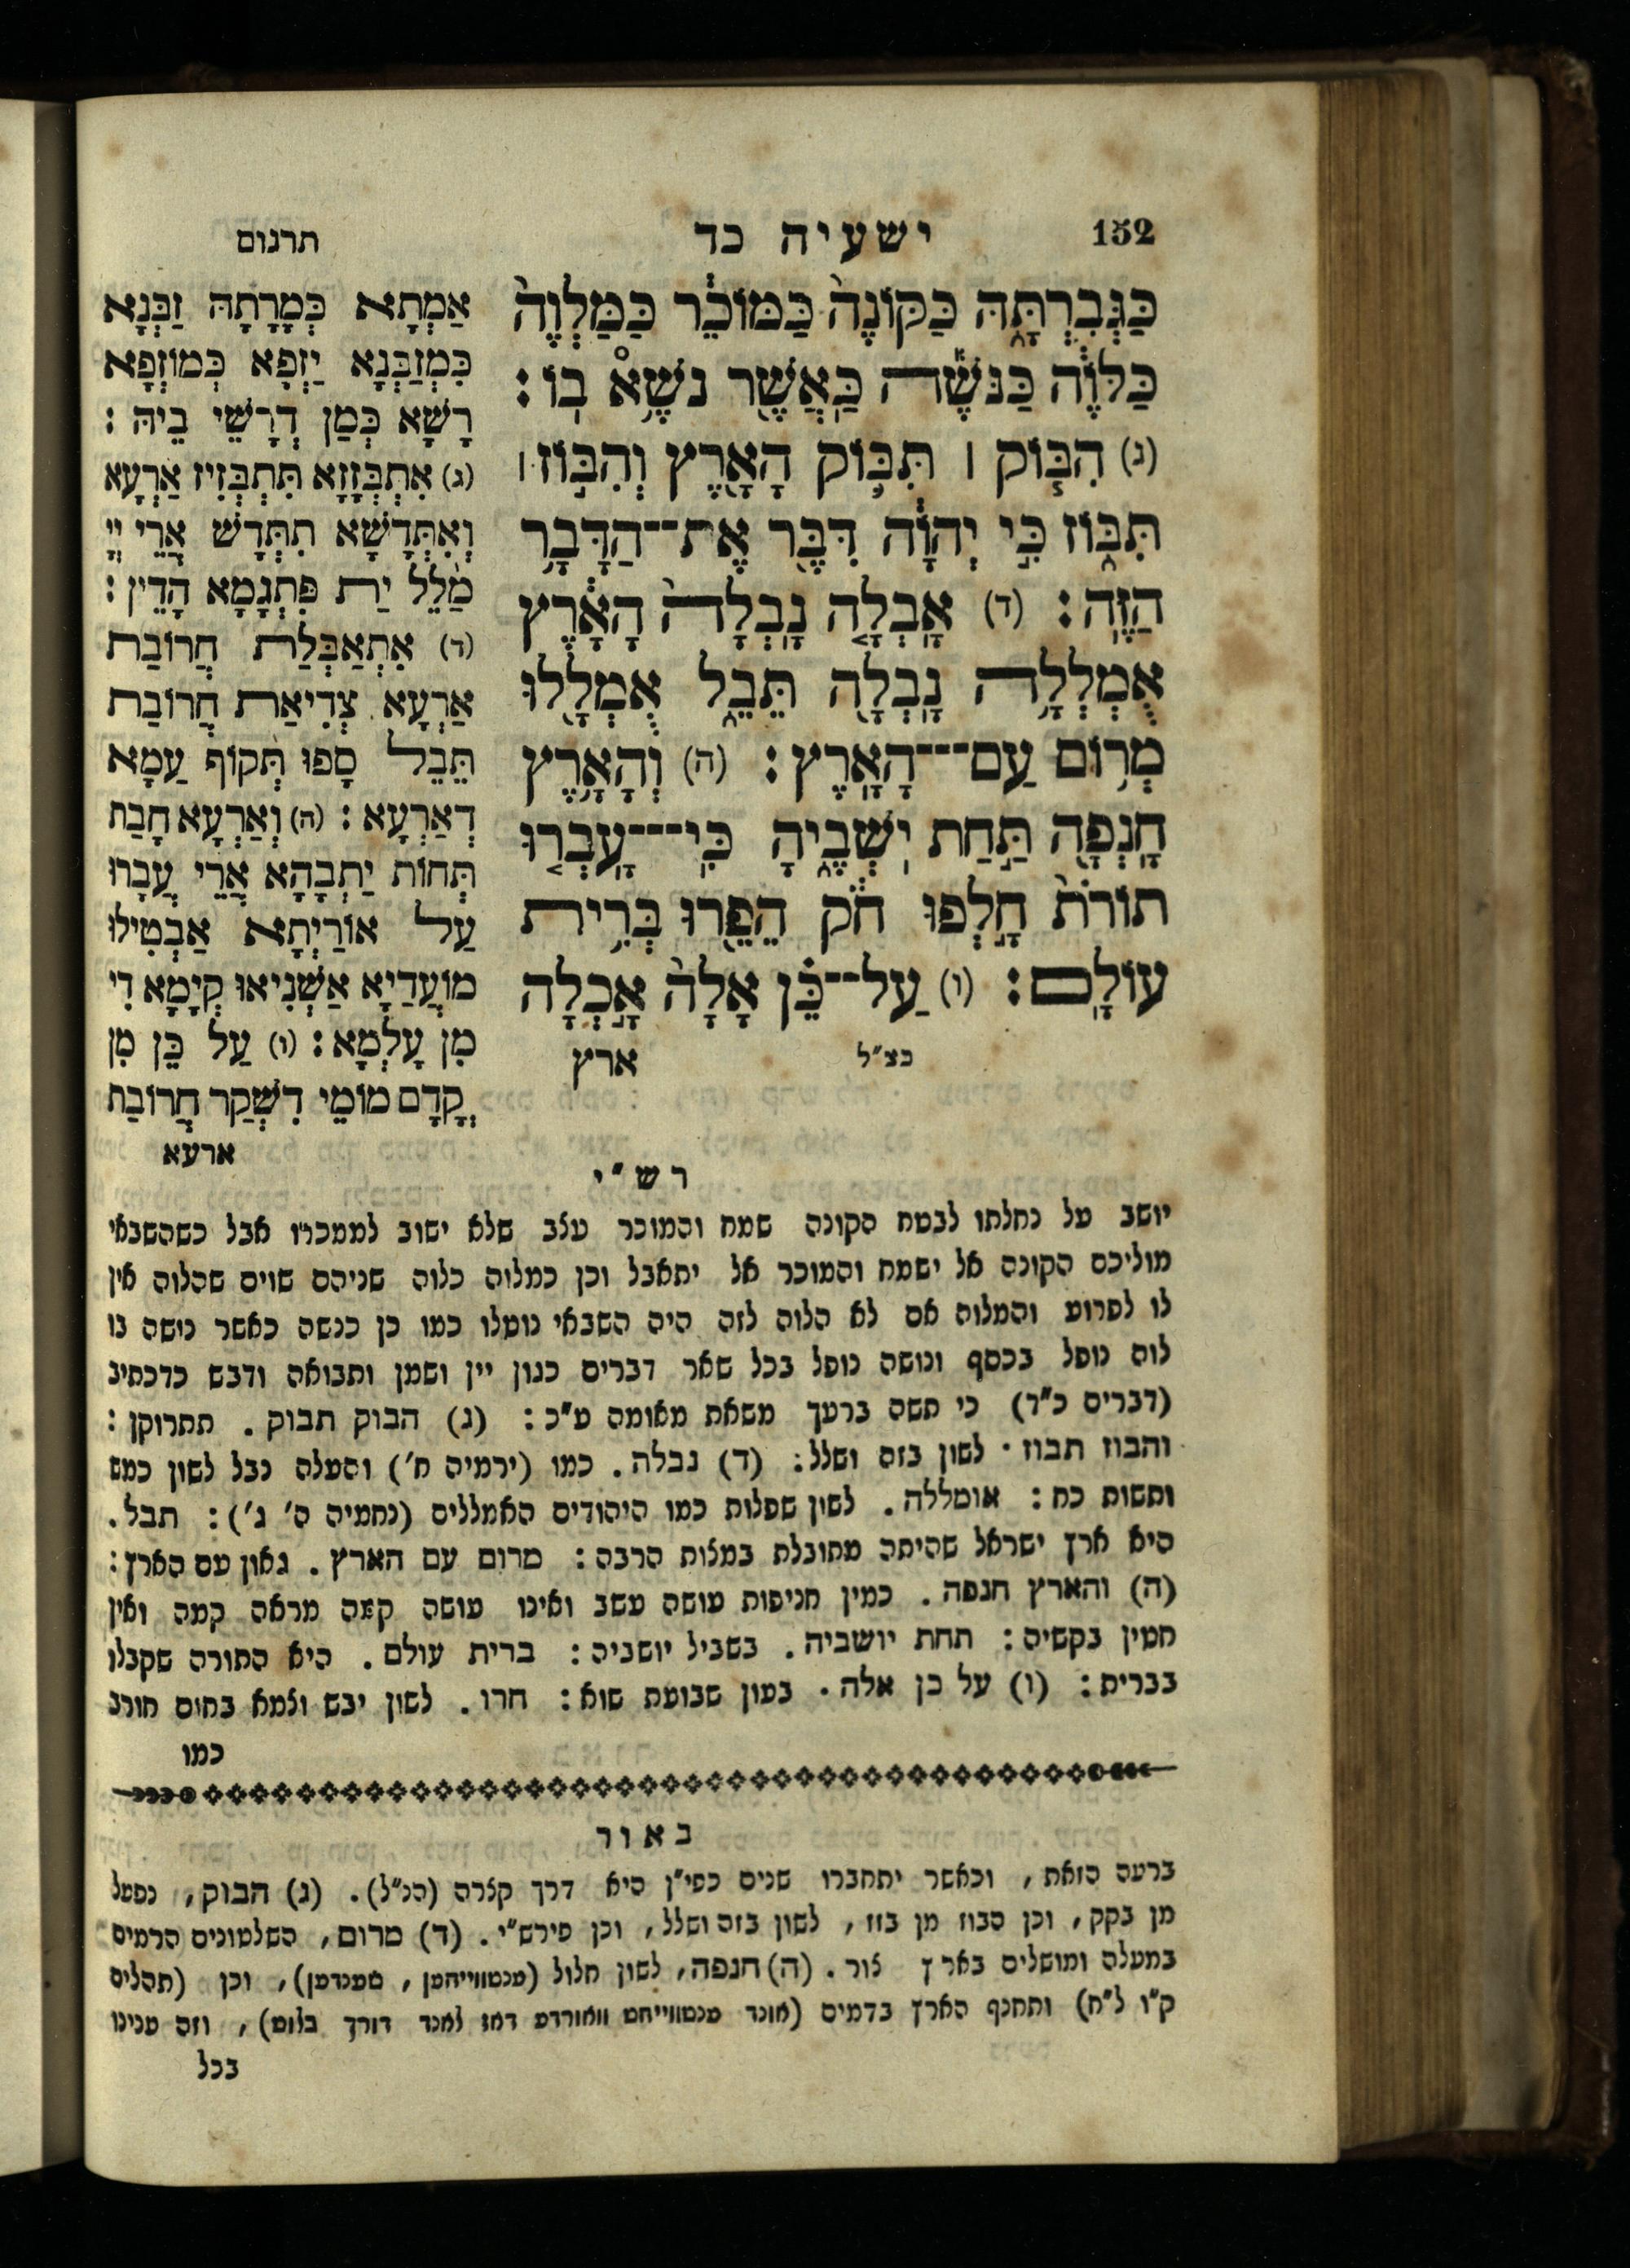 152
ישעיה כד
תרגום
כַּגְּבִרְתָּ֑הּ כַּקּוֹנֶה֙ כַּמּוֹכֵ֔ר כַּמַּלְוֶה֙
כַּלֹּוֶ֔ה כַּנֹּשֶׁ֕ה כַּאֲשֶׁ֖ר נֹשֶׁ֥א בֽוֹ׃
(ג) הִבּ֧וֹק ׀ תִּבּ֛וֹק הָאָ֖רֶץ וְהִבּ֣וֹז ׀
תִּבּ֑וֹז כִּ֣י יְהוָ֔ה דִּבֶּ֖ר אֶת־הַדָּבָ֥ר
הַזֶּֽה׃ (ד) אָבְלָ֤ה נָֽבְלָה֙ הָאָ֔רֶץ
אֻמְלְלָ֥ה נָבְלָ֖ה תֵּבֵ֑ל אֻמְלָ֖לוּ
מְר֥וֹם עַם־הָאָֽרֶץ׃ (ה) וְהָאָ֥רֶץ
חָנְפָ֖ה תַּ֣חַת יֹשְׁבֶ֑יהָ כִּֽי־עָבְר֤וּ
תוֹרֹת֙ חָ֣לְפוּ חֹ֔ק הֵפֵ֖רוּ בְּרִ֥ית
עוֹלָֽם׃ (ו) עַל־כֵּ֗ן אָלָה֙ אָ֣כְלָה
כצ״ל
ארץ
אַמְתָא כְּמָרָתָהּ זַבְּנָא
כִּמְזַבְּנָא יַזְפָא כְּמוֹזְפָא
רָשָׁא כְּמַן דְרָשֵׁי בֵיהּ׃
(ג) אִתְבְּזָזָא תִּתְבְּזִיז אַרְעָא
וְאִתְּדָשָׁא תִתְּדָשׁ אֲרֵי יְיָ
מַלֵּל יַת פִּתְגָמָא הָדֵין׃
(ד) אִתְאַבְּלַת חֲרוֹבַת
אַרְעָא צְדִיאַת חֲרוֹבַת
תֵּבֵל סָפוּ תְּקוֹף עַמָא
דְאַרְעָא׃ (ה) וְאַרְעָא חָבַת
תְּחוֹת יַתְבָהָא אֲרֵי עֲבָרוּ
עַל אוֹרַיְתָא אַבְטִילוּ
מוֹעֲדַיָא אַשְׁנִיאוּ קְיָמָא דִי
מִן עָלְמָא׃ (ו) עַל כֵּן מִן
קֳדָם מוֹמֵי דִשְׁקַר חֲרוֹבַת
ארעא
רש״י
יושב על נחלתו לבטח הקונה שמח והמוכר עצב שלא ישוב לממכרו אבל כשהשבאי
מוליכם הקונה אל ישמח והמוכר אל יתאבל וכן כמלוה כלוה שניהם שוים שהלוה אין
לו לפרוע והמלוה אם לא הלוה לזה היה השבאי נוטלו כמו כן כנשה כאשר נושה בו
לוה נופל בכסף ונושה נופל בכל שאר דברים כגון יין ושמן ותבואה ודבש כדכתיב
(דברים כ״ד) כי תשה ברעך משאת מאומה ע״כ: (ג) הבוק תבוק. תתרוקן:
והבוז תבוז. לשון בזה ושלל: (ד) נבלה. כמו (ירמיה ח׳) והעלה נבל לשון כמש
ותשות כח: אומללה. לשון שפלות כמו היהודים האמללים (נחמיה ה׳ ג׳): תבל.
היא ארץ ישראל שהיתה מתובלת במצות הרבה: מרום עם הארץ. גאון עם הארץ:
(ה) והארץ חנפה. כמין חניפות עושה עשב ואינו עושה קצה מראה קמה ואין
חטין בקשיה: תחת יושביה. בשביל יושביה: ברית עולם. היא התורה שקבלו
בברית: (ו) על כן אלה. בעון שבועת שוא: חרו. לשון יבש וצמא בחום חורב
כמו
באור
ברעה הזאת, וכאשר יתחברו שנים כפי״ן היא דרך קצרה (הנ״ל). (ג) הבוק, נפעל
מן בקק, וכן הבוז מן בזז, לשון בזה ושלל, וכן פירש״י. (ד) מרום, השלטונים הרמים
במעלה ומושלים בארץ צור. (ה) חנפה, לשון חלול (ענטווייהען, שענדען), וכן (תהלים
ק״ו ל״ח) ותחנף הארץ בדמים (אונד ענטווייהט וואורדע דאז לאנד דורך בלוט), וזה ענינו
בכל